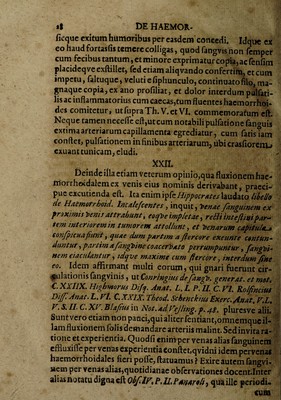 18 DE HAEMOR-
sicque exitum humoribus per easdem concedi. Idque ex
eo haud fortassis temere colligas, quod sanguis non semper
cum fecibus tantum, et minore exprimatur copia, ac sensim
placideque exstillet, sed etiam aliquando confertim, et cum
impetu, saltuque, veluti e siphunculo, continuato filo, ma-
gnaque copia, ex ano prosiliat, et dolor interdum pulsati-
lis ac inflammatorius cum caecas, tum fluentes haemorrhoi-
des comitetur, ut supra Th. V. et VI. commemoratum est.
Neque tamen necesse est, ut cum notabili pulsatione sanguis
extima arteriarum capillamenta egrediatur, cum satis iam
constet, pulsationem in finibus arteriarum, ubi crassiorem
exuant tunicam, eludi.
XXII.
Deinde illa etiam veterum opinio, quae fluxionem hae-
morrhoidalem ex venis eius nominis derivabant, praeci-
pue excutienda est. Ita enim ipse Hippocrates laudato libello
de Haemorrhoid. Incalescentes, inquit, venae sanguinem ex
proximis venis attrahunt, eoque impletae, recti intestini par-
tem interiorem in tumorem attollunt, et venarum capitula
conspicua fiunt, quae dum partem a stercore exeunte contun-
duntur, partim a sanguine coacervato perrumpuntur, sangui-
nem eiaculantur, idque maxime cum stercore, interdum sine
eo. Idem affirmant multi eorum, qui gnari fuerunt cir-
culationis sanguinis, ut Conringius de sangu. generat. et mot.
C. XXIIX. Highmorus Disq. Anat. L. I. P. II. C. VI. Rolfincius
Diss. Anat. L. VI. C. XXIX. Theod. Schenckius Exerc. Anat. V. L.
V. S. II. C. XV. Blasius in Not. ad Vesling. p. 48. pluresve alii.
Sunt vero etiam non pauci, qui aliter sentiant, omnemque il-
lam fluxionem solis demandare arteriis malint. Sed invita ra-
tione et experientia. Quodsi enim per venas alias sanguinem
effluxisse per venas experientia constet, quidni idem per venas
haemorrhoidales fieri posse, statuamus? Exire autem sangvi-
nem per venas alias, quotidianae observationes docent. Inter
alias notatu digna est Obs. IV. P. II. Panaroli, qua ille periodi-
cum